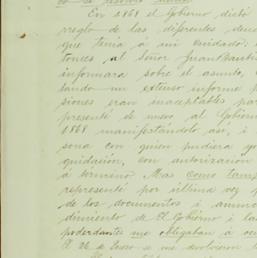 En 1868 el Gobierno dictó
rreglo de las diferentes deu
que tenia á mi cuidado.
tonces al Señor Juan Bauti
informara sobre el asunto,
tando un extenso informe p
siones eran inaceptables par
presenté de nuevo al Gobier
1868 manifestándolo así, i
sona con quien pudiera
quidación, con autorización
á término. Mas como
representé por última vez
de los documentos i
dimiento de El Gobierno i la
poderdantes me obligaban á
El 26 de Enero se me devolvieron